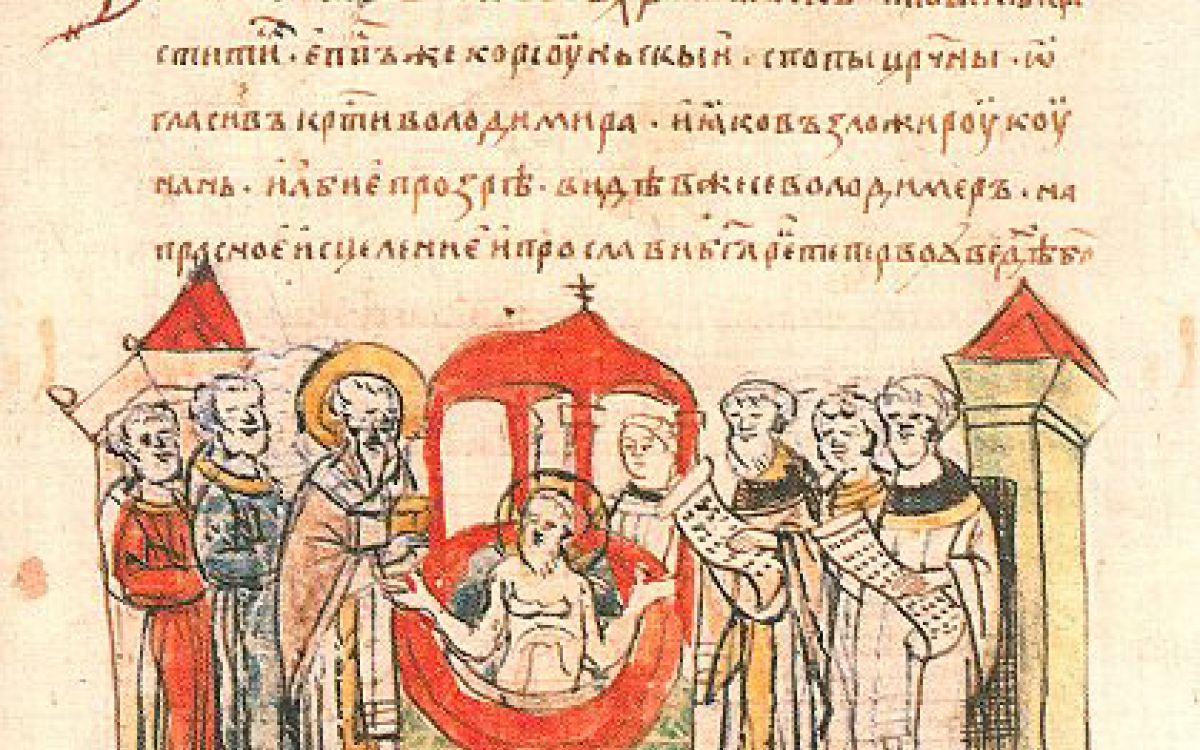 стити҃ · еп҃пъ же корсоуньскыи · с попы црч҃ны · ѿ
гласивъ крт҃и володимира · и ꙗко възложи роукоу
нань · и абие прозрѣ · видѣв же се володимеръ · на
прасное исцеление и прослави